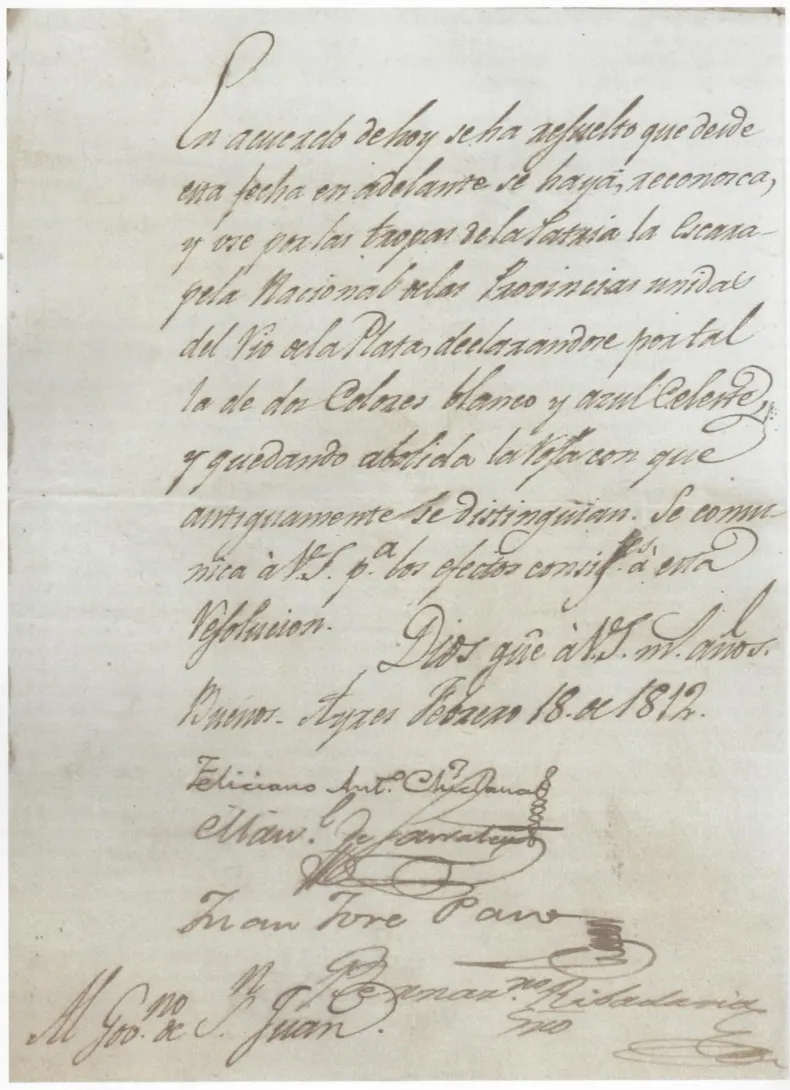 En acuerdo de hoy se ha resuelto que desde
esta fecha en adelante se haya, reconosca,
y use por las tropas de la Patria la Escara-
pela Nacional de las Provincias unidas
del Rio de la Plata, declarandose por tal
la de dos Colores blanco y azul Celeste,
y quedando abolida la Roja con que
antiguamente se distinguian. Se comu-
nica à V.S. p.a los efectos consig.tes à esta
Resolucion.
Dios gũe à V.S. m.s años.
Buenos-Ayres Febrero 18. de 1812.
Feliciano Ant.o Chiclana
Man.l de Sarratea
Juan Jose Paso
Bernar.no Ribadavia
Al Gov.no de S.n Juan.